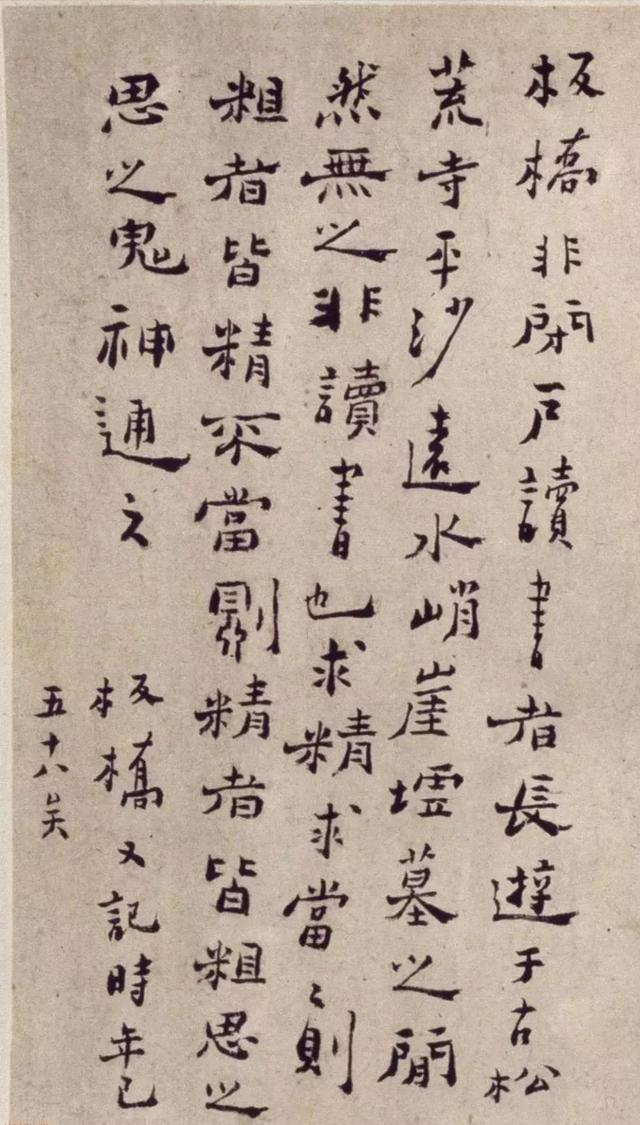 板橋非閉戶讀書者長遊于古松
荒寺平沙遠水峭崖墟墓之間
然無之非讀書也求精求當々則
粗者皆精不當則精者皆粗思之
思之鬼神通之
板橋又記時年已
五十八矣